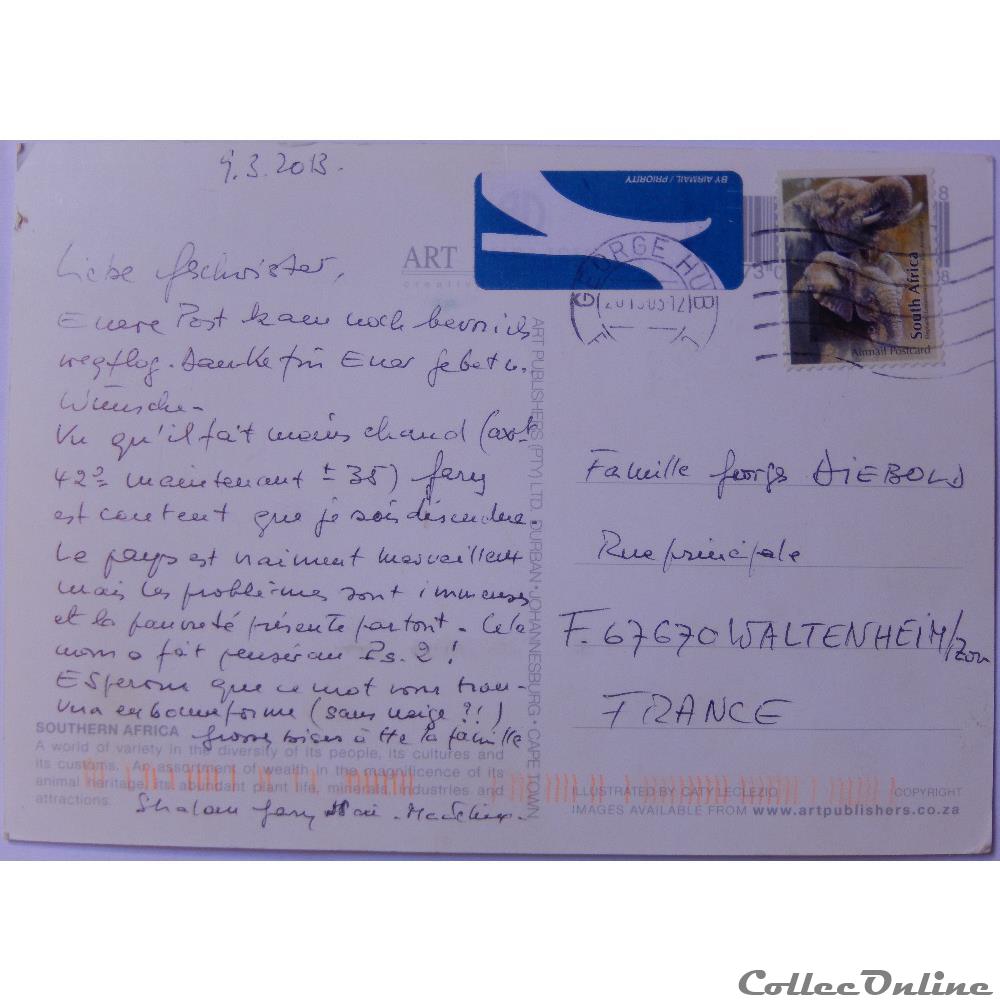 9.3.2013.
BY AIRMAIL / PRIORITY
ART
GEORGE HU
South Africa
Airmail Postcard
Liebe Gschwister,
Euere Post kam noch bevor ich
wegflog. Danke für Euer Gebet u.
Wünsche.
Vu qu'il fait moins chaud (
42° maintenant ± 35) Gery
est content que je sois descendue.
Le pays est vraiment merveilleux
mais les problèmes sont immenses
et la pauvreté présente partout. Cela
nous a fait penser au Ps. 2!
Espérons que ce mot vous trou-
vera en bonne forme (sans neige ?!)
Grosses bises à tte la famille
Shalom Gery
ART PUBLISHERS (PTY) LTD. DURBAN • JOHANNESBURG • CAPE TOWN
Famille Georges DIEBOLD
Rue principale
F. 67670 WALTENHEIM/Zorn
FRANCE
SOUTHERN AFRICA
A world of variety in the diversity of its people, its cultures and
its customs. An assortment of wealth in the magnificence of its
animal heritage, its abundant plant life, minerals, industries and
attractions.
ILLUSTRATED BY CATY LECLEZIO
COPYRIGHT
IMAGES AVAILABLE FROM www.artpublishers.co.za
CollecOnline